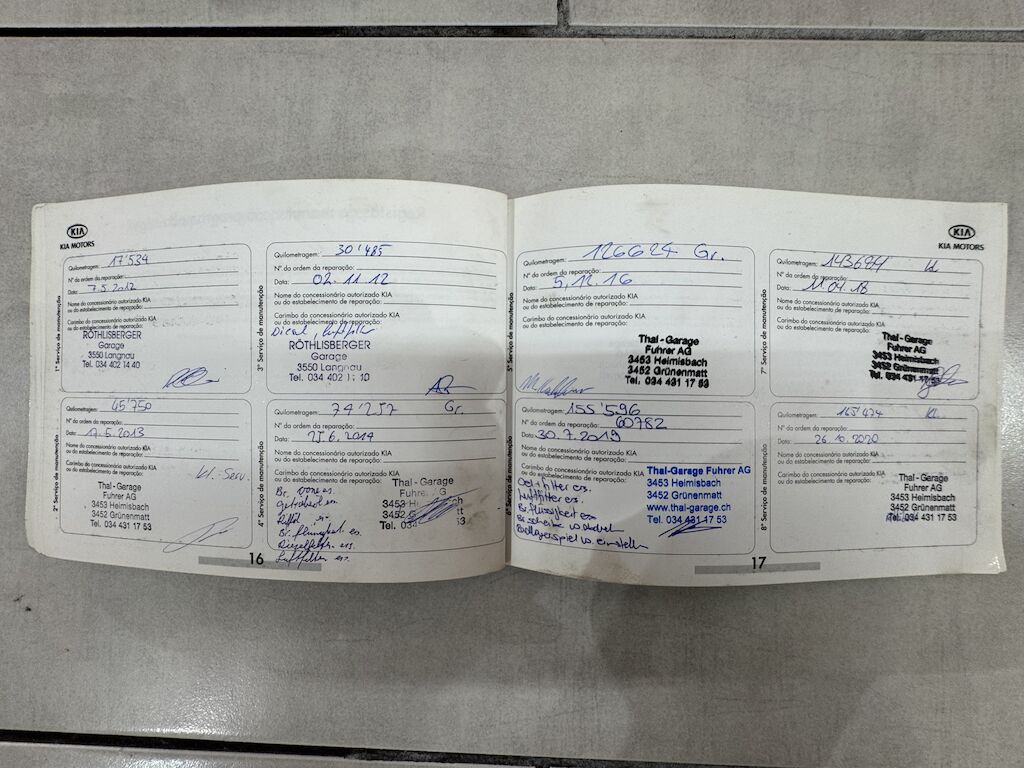 KIA
KIA MOTORS
1º Serviço de manutenção
Quilometragem: 17'534
Nº da ordem da reparação:
Data: 7.5.2012
Nome do concessionário autorizado KIA
ou do estabelecimento de reparação:
Carimbo do concessionário autorizado KIA
ou do estabelecimento de reparação:
RÖTHLISBERGER
Garage
3550 Langnau
Tel. 034 402 14 40
2º Serviço de manutenção
Quilometragem: 45'750
Nº da ordem da reparação:
Data: 17.5.2013
Nome do concessionário autorizado KIA
ou do estabelecimento de reparação:
Kl.-Serv.
Carimbo do concessionário autorizado KIA
ou do estabelecimento de reparação:
Thal - Garage
Fuhrer AG
3453 Heimisbach
3452 Grünenmatt
Tel. 034 431 17 53
3º Serviço de manutenção
Quilometragem: 30'485
Nº da ordem da reparação:
Data: 02.11.12
Nome do concessionário autorizado KIA
ou do estabelecimento de reparação:
Carimbo do concessionário autorizado KIA
ou do estabelecimento de reparação:
Diesel
RÖTHLISBERGER
Garage
3550 Langnau
Tel. 034 402 10
4º Serviço de manutenção
Quilometragem: 74'257 Gr.
Nº da ordem da reparação:
Data: 25.6.2014
Nome do concessionário autorizado KIA
ou do estabelecimento de reparação:
Carimbo do concessionário autorizado KIA
ou do estabelecimento de reparação:
Thal - Garage
Fuhrer AG
3453
3452
Tel. 034 53
Br. ers.
ers.
ers.
Br. flüssigkeit ers.
Dieselfilter ers.
Luftfilter ers.
16
KIA
KIA MOTORS
5º Serviço de manutenção
Quilometragem: 126624 Gr.
Nº da ordem da reparação:
Data: 5.12.16
Nome do concessionário autorizado KIA
ou do estabelecimento de reparação:
Carimbo do concessionário autorizado KIA
ou do estabelecimento de reparação:
Thal - Garage
Fuhrer AG
3453 Heimisbach
3452 Grünenmatt
Tel. 034 431 17 53
Quilometragem: 155'596
Nº da ordem da reparação: 60782
Data: 30.7.2019
Nome do concessionário autorizado KIA
ou do estabelecimento de reparação:
Carimbo do concessionário autorizado KIA
ou do estabelecimento de reparação:
Thal-Garage Fuhrer AG
3453 Heimisbach
3452 Grünenmatt
www.thal-garage.ch
Tel. 034 431 17 53
Oelfilter ers.
Luftfilter ers.
Br. flüssigkeit ers.
7º Serviço de manutenção
Quilometragem: 143684 kl.
Nº da ordem da reparação:
Data: 11.04.18
Nome do concessionário autorizado KIA
ou do estabelecimento de reparação:
Carimbo do concessionário autorizado KIA
ou do estabelecimento de reparação:
Thal - Garage
Fuhrer AG
3453 Heimisbach
3452 Grünenmatt
Tel. 034 431 17 53
8º Serviço de manutenção
Quilometragem: 165'474 Kl.
Nº da ordem da reparação:
Data: 26.10.2020
Nome do concessionário autorizado KIA
ou do estabelecimento de reparação:
Carimbo do concessionário autorizado KIA
ou do estabelecimento de reparação:
Thal - Garage
Fuhrer AG
3453 Heimisbach
3452 Grünenmatt
Tel. 034 431 17 53
17